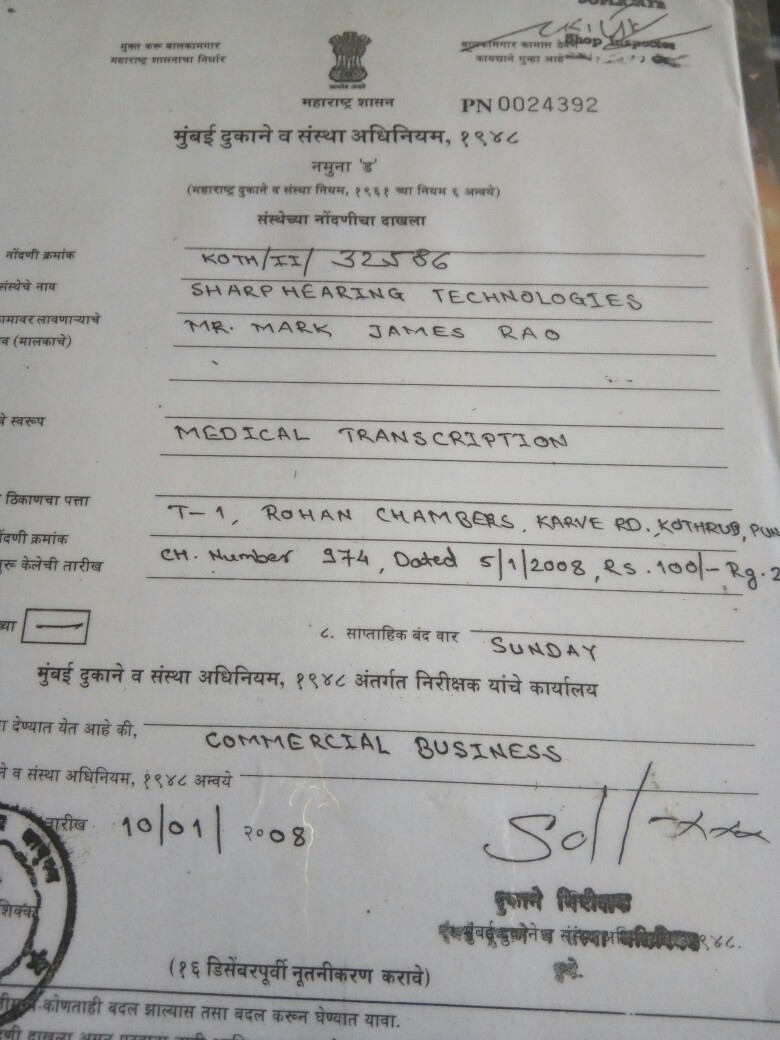 मुक्त करू बालकामगार
महाराष्ट्र शासनाचा निर्धार
बालकामगार कामास
Shop Inspector
कायद्याने गुन्हा आहे
महाराष्ट्र शासन
PN 0024392
मुंबई दुकाने व संस्था अधिनियम, १९४८
नमुना 'ड'
(महाराष्ट्र दुकाने व संस्था नियम, १९६१ च्या नियम ६ अन्वये)
संस्थेच्या नोंदणीचा दाखला
नोंदणी क्रमांक KOTH/II/ 32586
संस्थेचे नाव SHARP HEARING TECHNOLOGIES
कामावर लावणाऱ्याचे MR. MARK JAMES RAO
व (मालकाचे)
चे स्वरूप MEDICAL TRANSCRIPTION
ठिकाणचा पत्ता T-1, ROHAN CHAMBERS, KARVE RD., KOTHRUD, PUN
नोंदणी क्रमांक CH. Number 974, Dated 5/1/2008, RS. 100/- Rg. 2
सुरू केलेची तारीख
ख्या —
८. साप्ताहिक बंद वार SUNDAY
मुंबई दुकाने व संस्था अधिनियम, १९४८ अंतर्गत निरीक्षक यांचे कार्यालय
देण्यात येत आहे की, COMMERCIAL BUSINESS
ने व संस्था अधिनियम, १९४८ अन्वये
तारीख 10/01/२००8
Sd/- xxx
दुकाने निरीक्षक
मुंबई दुकाने व संस्था अधिनियम १९४८.
शिक्का
(१६ डिसेंबरपूर्वी नूतनीकरण करावे)
कोणताही बदल झाल्यास तसा बदल करून घेण्यात यावा.